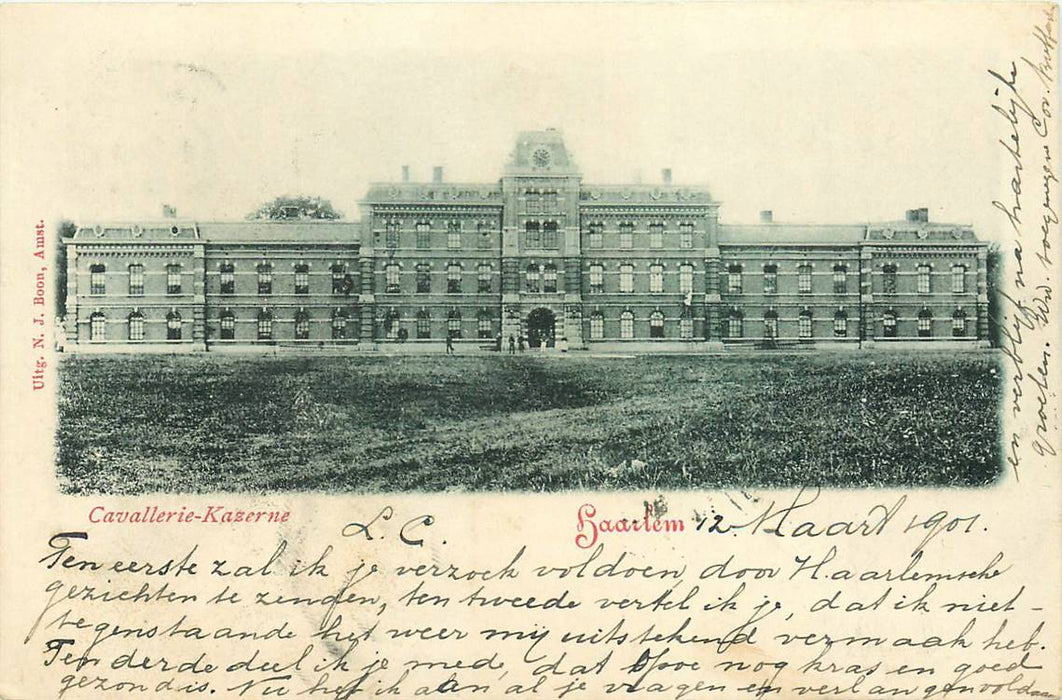 Uitg. N. J. Boon, Amst.
Cavallerie-Kazerne
Haarlem 12 Maart 1901.
L. C.
Ten eerste zal ik je verzoek voldoen door Haarlemsche
gezichten te zenden, ten tweede vertel ik je, dat ik niet-
tegenstaande het weer mij uitstekend vermaak heb.
Ten derde deel ik je mede, dat Opoe nog kras en goed
gezond is. Nu heb ik aan al je vragen en verlangen voldaan
en verblijf na hartelijke
groeten. Uw toegenegen Cor.